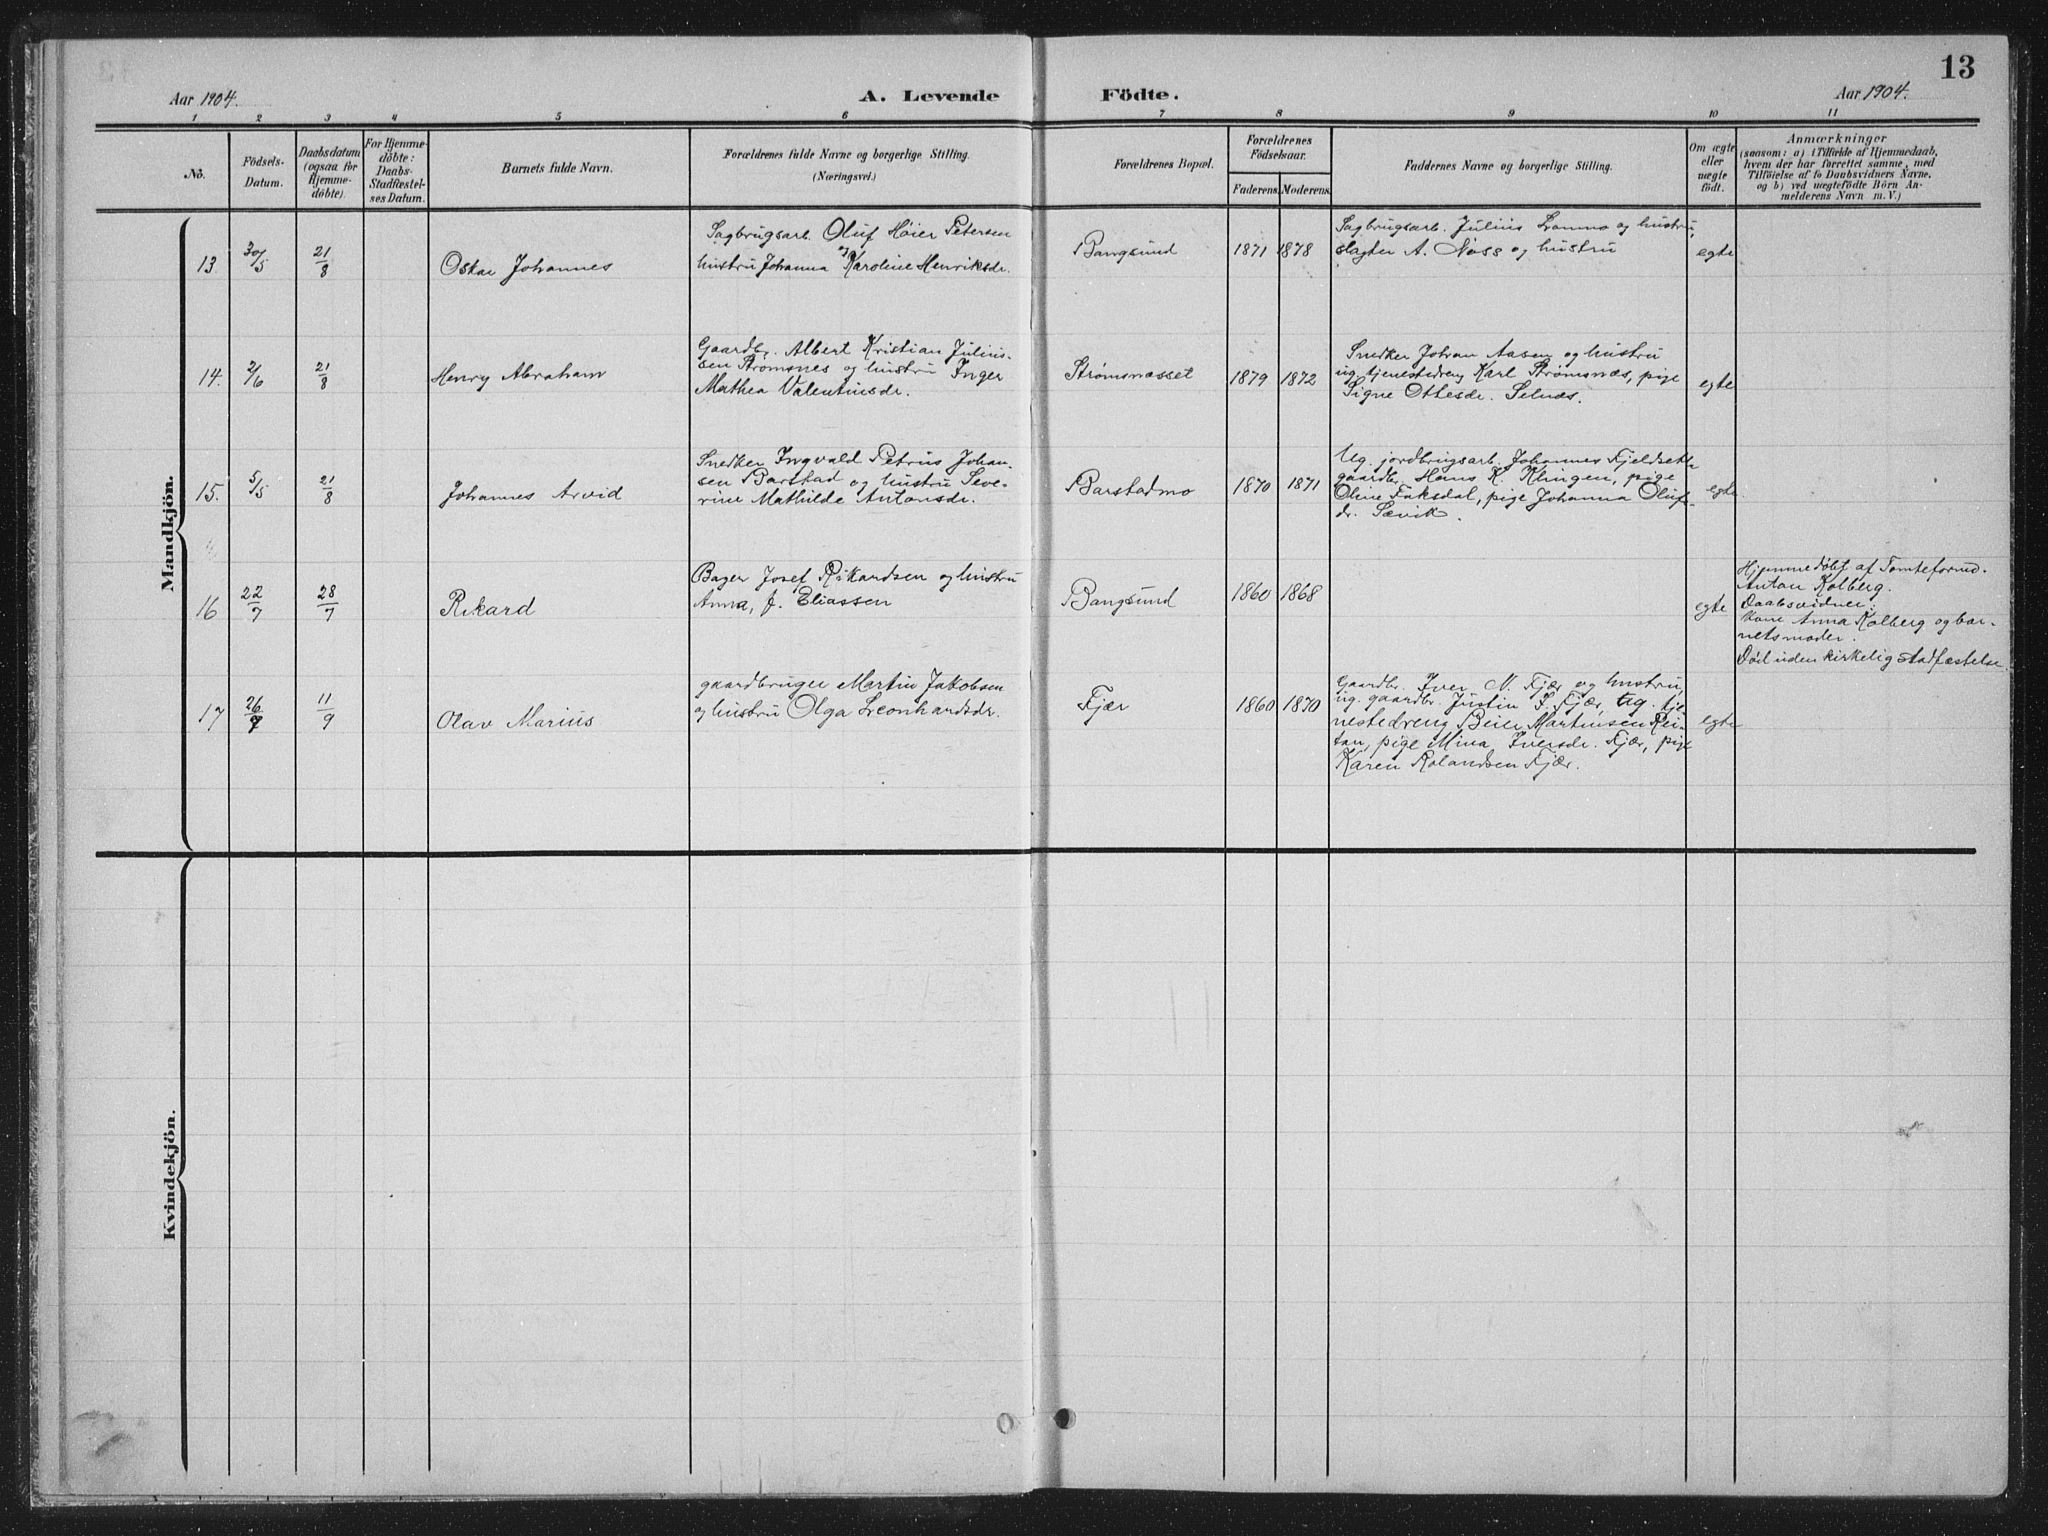 13
Aar 1904.
A. Levende Födte.
Aar 1904.
1 2 3 4 5 6 7 8 9 10 11
No.
Födsels-
Datum.
Daabsdatum
(ogsaa for
Hjemme-
döbte).
For Hjemme-
döbte:
Daabs-
Stadfæstel-
ses Datum.
Barnets fulde Navn.
Forældrenes fulde Navne og borgerlige Stilling.
(Næringsvei.)
Forældrenes Bopæl.
Forældrenes
Födselsaar.
Faderens. Moderens.
Faddernes Navne og borgerlige Stilling.
Om ægte
eller
uægte
födt.
Anmærkninger
(saasom: a) i Tilfælde af Hjemmedaab,
hvem der har forrettet samme, med
Tilföielse af to Daabsvidners Navne,
og b) ved uægtefödte Börn An-
melderens Navn m. V.)
Mandkjön.
13. 30/5 21/8 Oskar Johannes
Sagbrugsarb. Oluf Höier Petersen
og
hustru Johanna Karoline Henriksdr.
Bangsund 1871 1878
Sagbrugsarb. Julius Lommo og hustru,
slagter A. Næss og hustru
egte
14. 2/6 21/8 Henry Abraham
Gaardbr. Albert Kristian Julius-
sen Strømsnes og hustru Inger
Mathea Valentinsdr.
Strømsnæsset 1879 1872
Snedker Johan Aasen og hustru
ug. tjenestedreng Karl Strømsnæs, pige
Signe Ottesdr. Selnæs.
egte
15. 5/5 21/8 Johannes Arvid
Snedker Ingvald Petrus Johan-
sen Barstad og hustru Seve-
rine Mathilde Antonsdr.
Barstadmo 1870 1871
Ug. jordbrugsarb. Johannes
gaardbr. Hans K. Klingen, pige
Oline Faksdal, pige Johanna Olufs-
dr. Sævik.
egte
16 22/7 28/7 Rikard
Bager Josef Rikardsen og hustru
Anna, f. Eliassen
Bangsund 1860 1868
egte
Hjemmedøbt af
Anton Kolberg.
Daabsvidner:
Kone Anna Kolberg og bar-
nets moder.
Död uden kirkelig stadfæstelse.
17 26/7 11/9 Olav Marius
gaardbruger Martin Jakobsen
og hustru Olga Leonhardsdr.
Fjær 1860 1870
Gaardbr. Iver N. Fjær og hustru,
ug. gaardbr. Justin I. Fjær, ug. tje-
nestedreng Beier Martinsen Rei-
tan, pige Mina Iversdr. Fjær, pige
Karen Rolandsen Fjær.
egte
Kvindekjön.